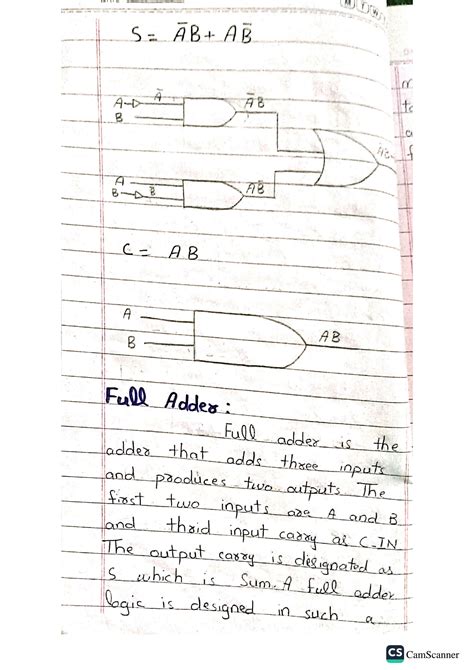 S = A̅B + AB̅
A A̅ A̅B
B
A AB̅
B B̅
C = AB
A
B AB
Full Adder:
Full adder is the
adder that adds three inputs
and produces two outputs. The
first two inputs are A and B
and thrid input carry as C-IN
The output carry is designated as
S which is Sum. A full adder
logic is designed in such a
CS CamScanner